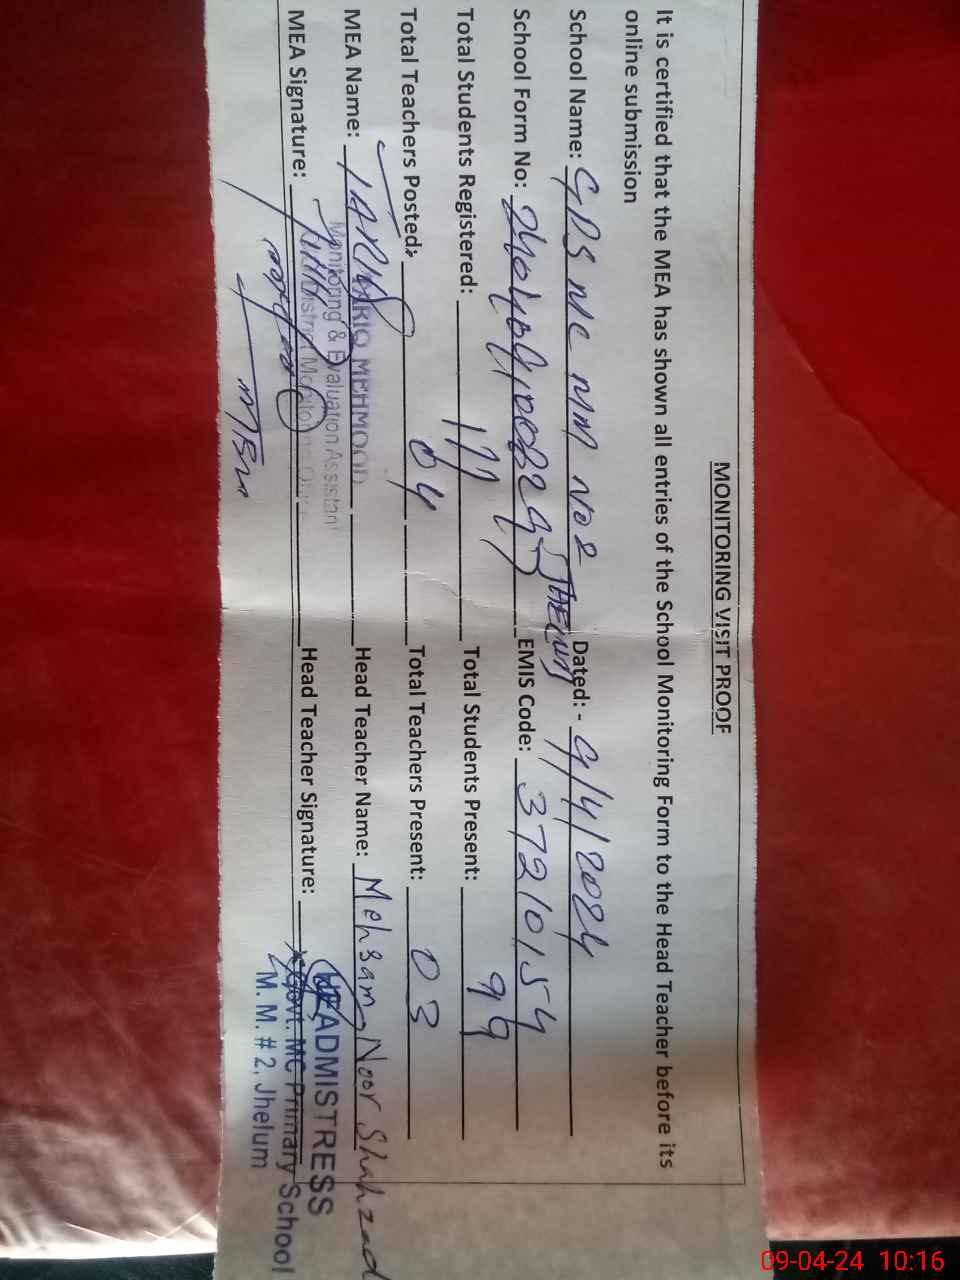 MONITORING VISIT PROOF
It is certified that the MEA has shown all entries of the School Monitoring Form to the Head Teacher before its
online submission
School Name: GPS MC MM No 2 JHELUM Dated: - 9/4/2024
School Form No: EMIS Code: 37210154
Total Students Registered: 111 Total Students Present: 99
Total Teachers Posted: 04 Total Teachers Present: 03
MEA Name: TARIQ MEHMOOD Head Teacher Name: Mehsam Noor Shahzad
Monitoring & Evaluation Assistant
MEA Signature: District Monitoring Office Head Teacher Signature:
HEADMISTRESS
Govt. MC Primary School
M. M. # 2, Jhelum
09-04-24 10:16